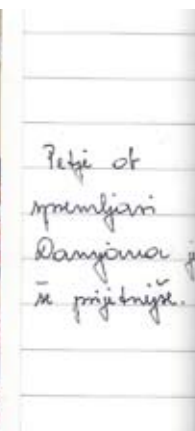 Petje ob
spremljavi
Damjana j
še prijetnejše.